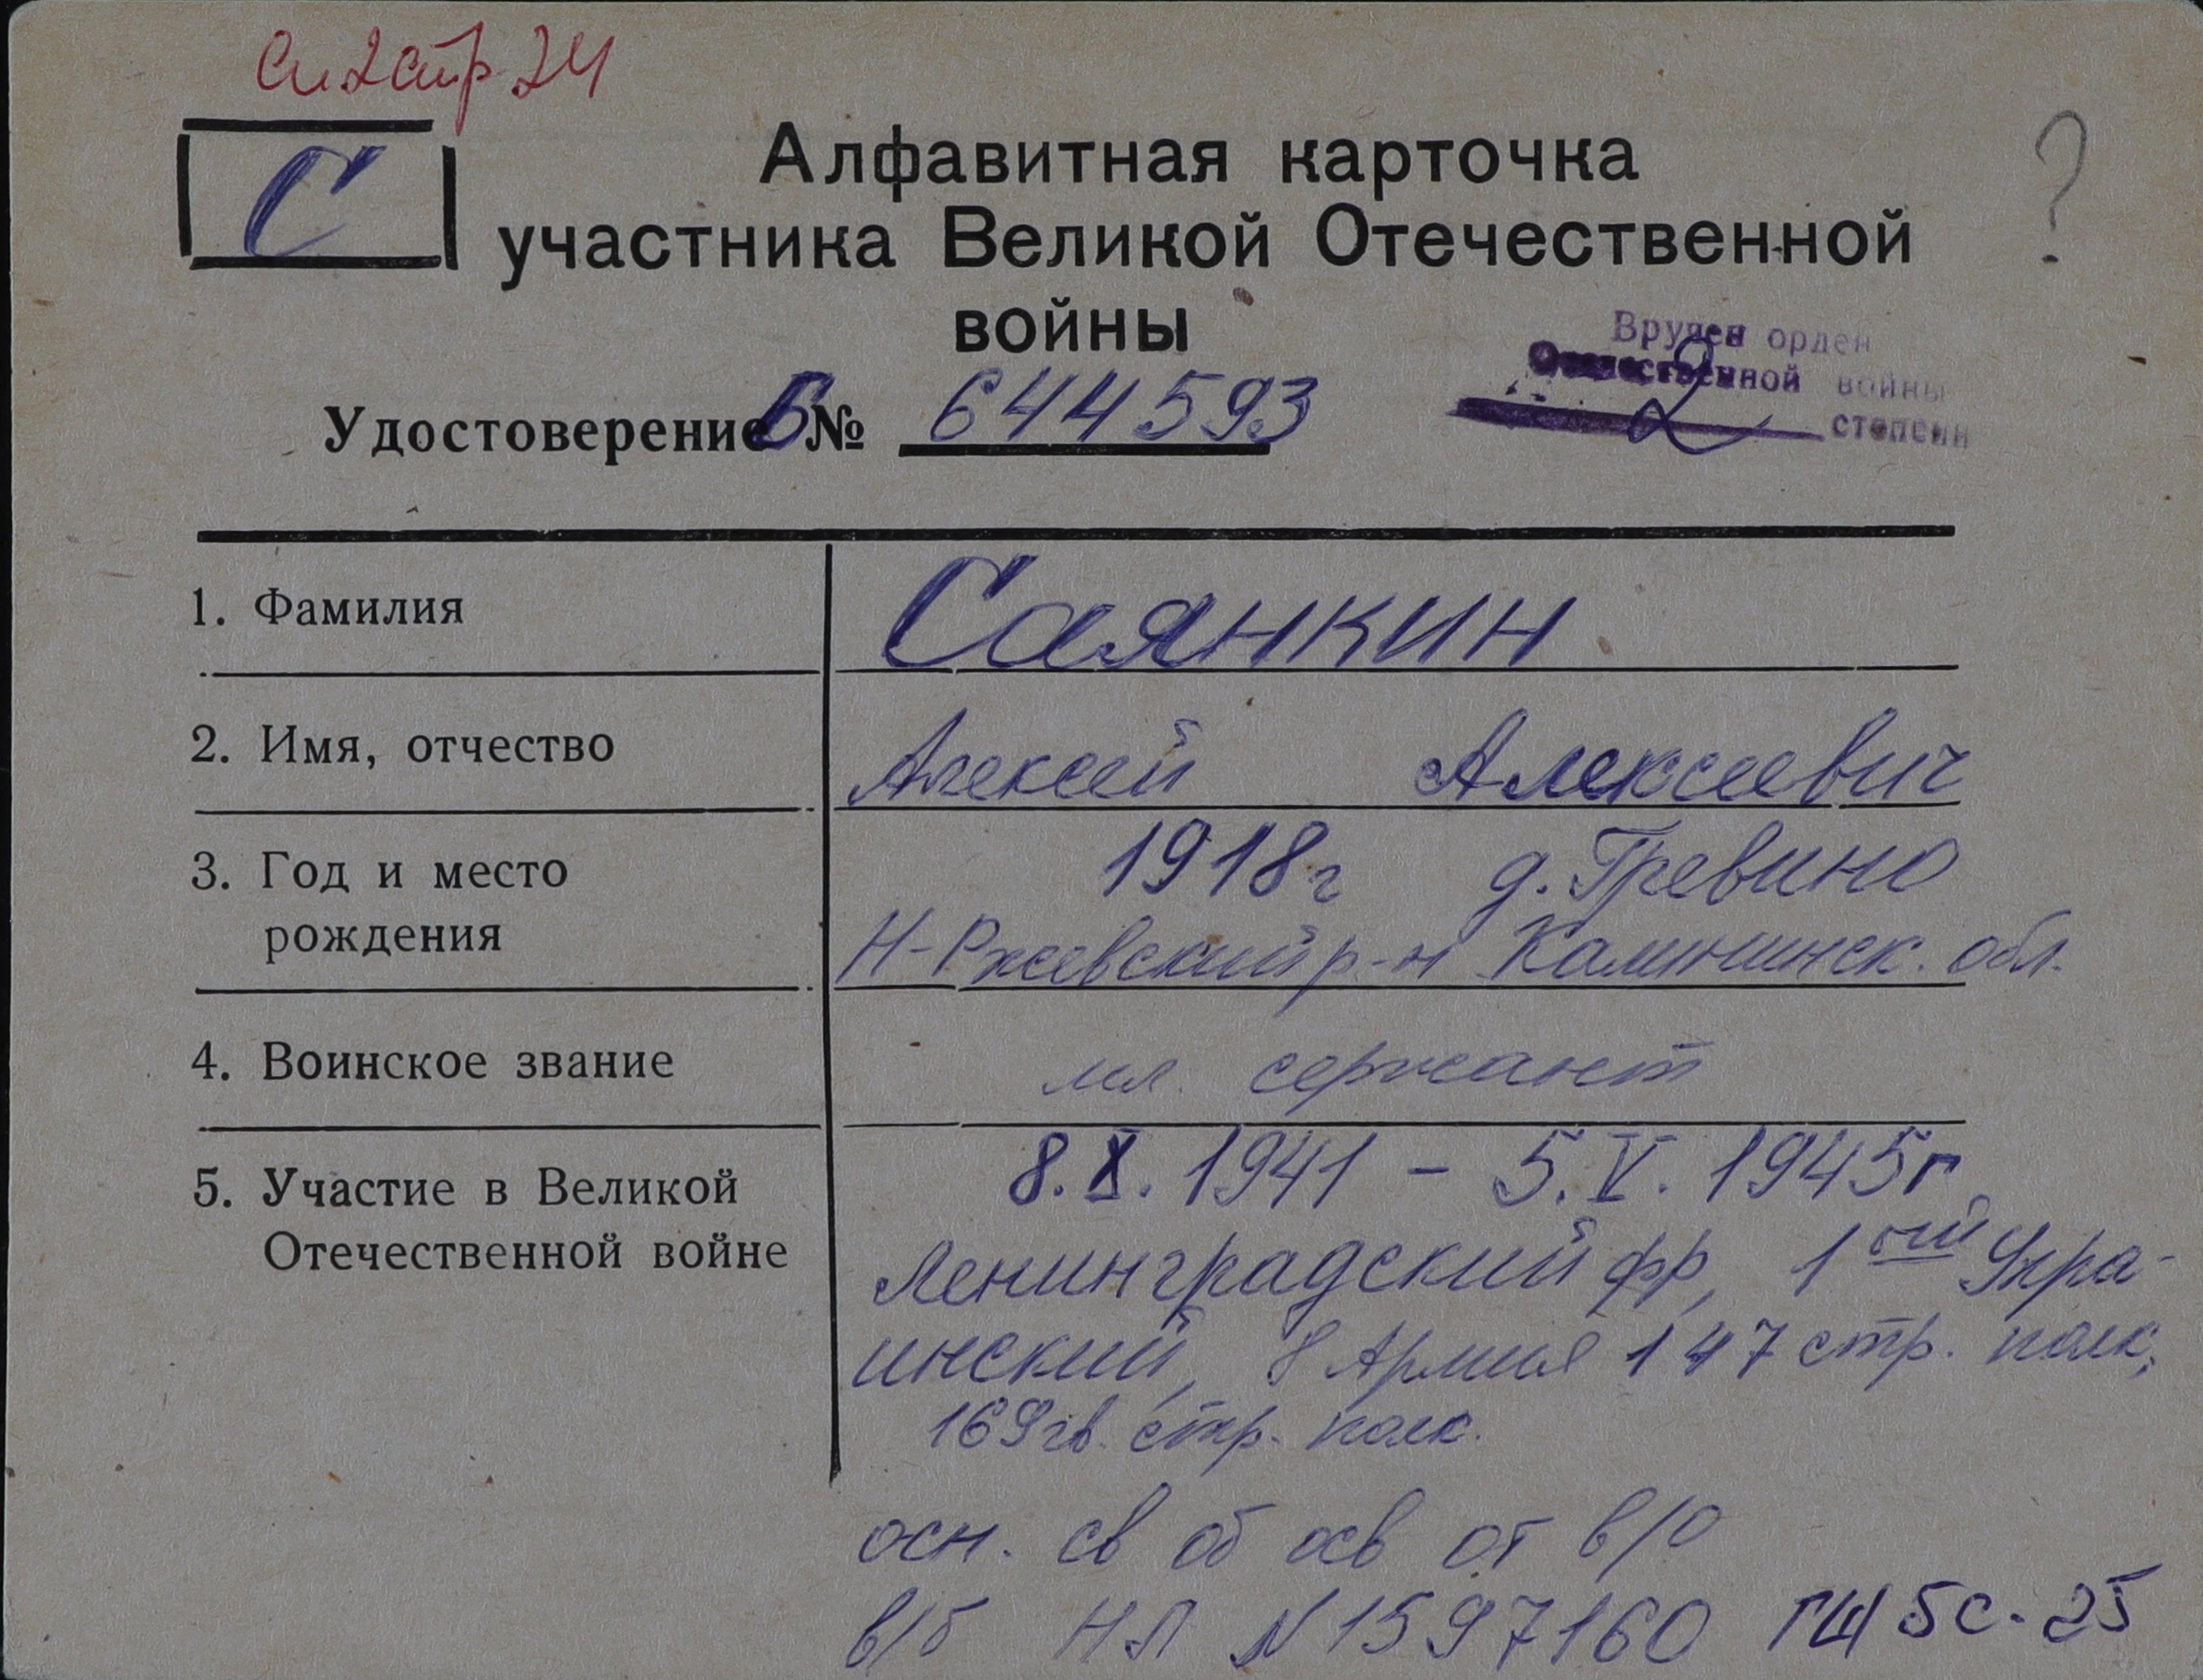 Сп 2 стр 24
С
Алфавитная карточка
участника Великой Отечественной
войны
?
Вручен орден
Отечественной войны
2 степени
Удостоверение Б № 644593
1. Фамилия Саянкин
2. Имя, отчество Алексей Алексеевич
3. Год и место 1918г д. Гревино
рождения Н-Ржевский р-н Калининск. обл.
4. Воинское звание мл. сержант
5. Участие в Великой 8.X.1941 - 5.V.1945г.
Отечественной войне Ленинградский фр, 1ый Укра-
инский, 8 Армия 147 стр. полк,
169 гв. стр. полк.
осн. св об осв от в/о
в/б НЛ N 1597160 ГЩ 5с-25